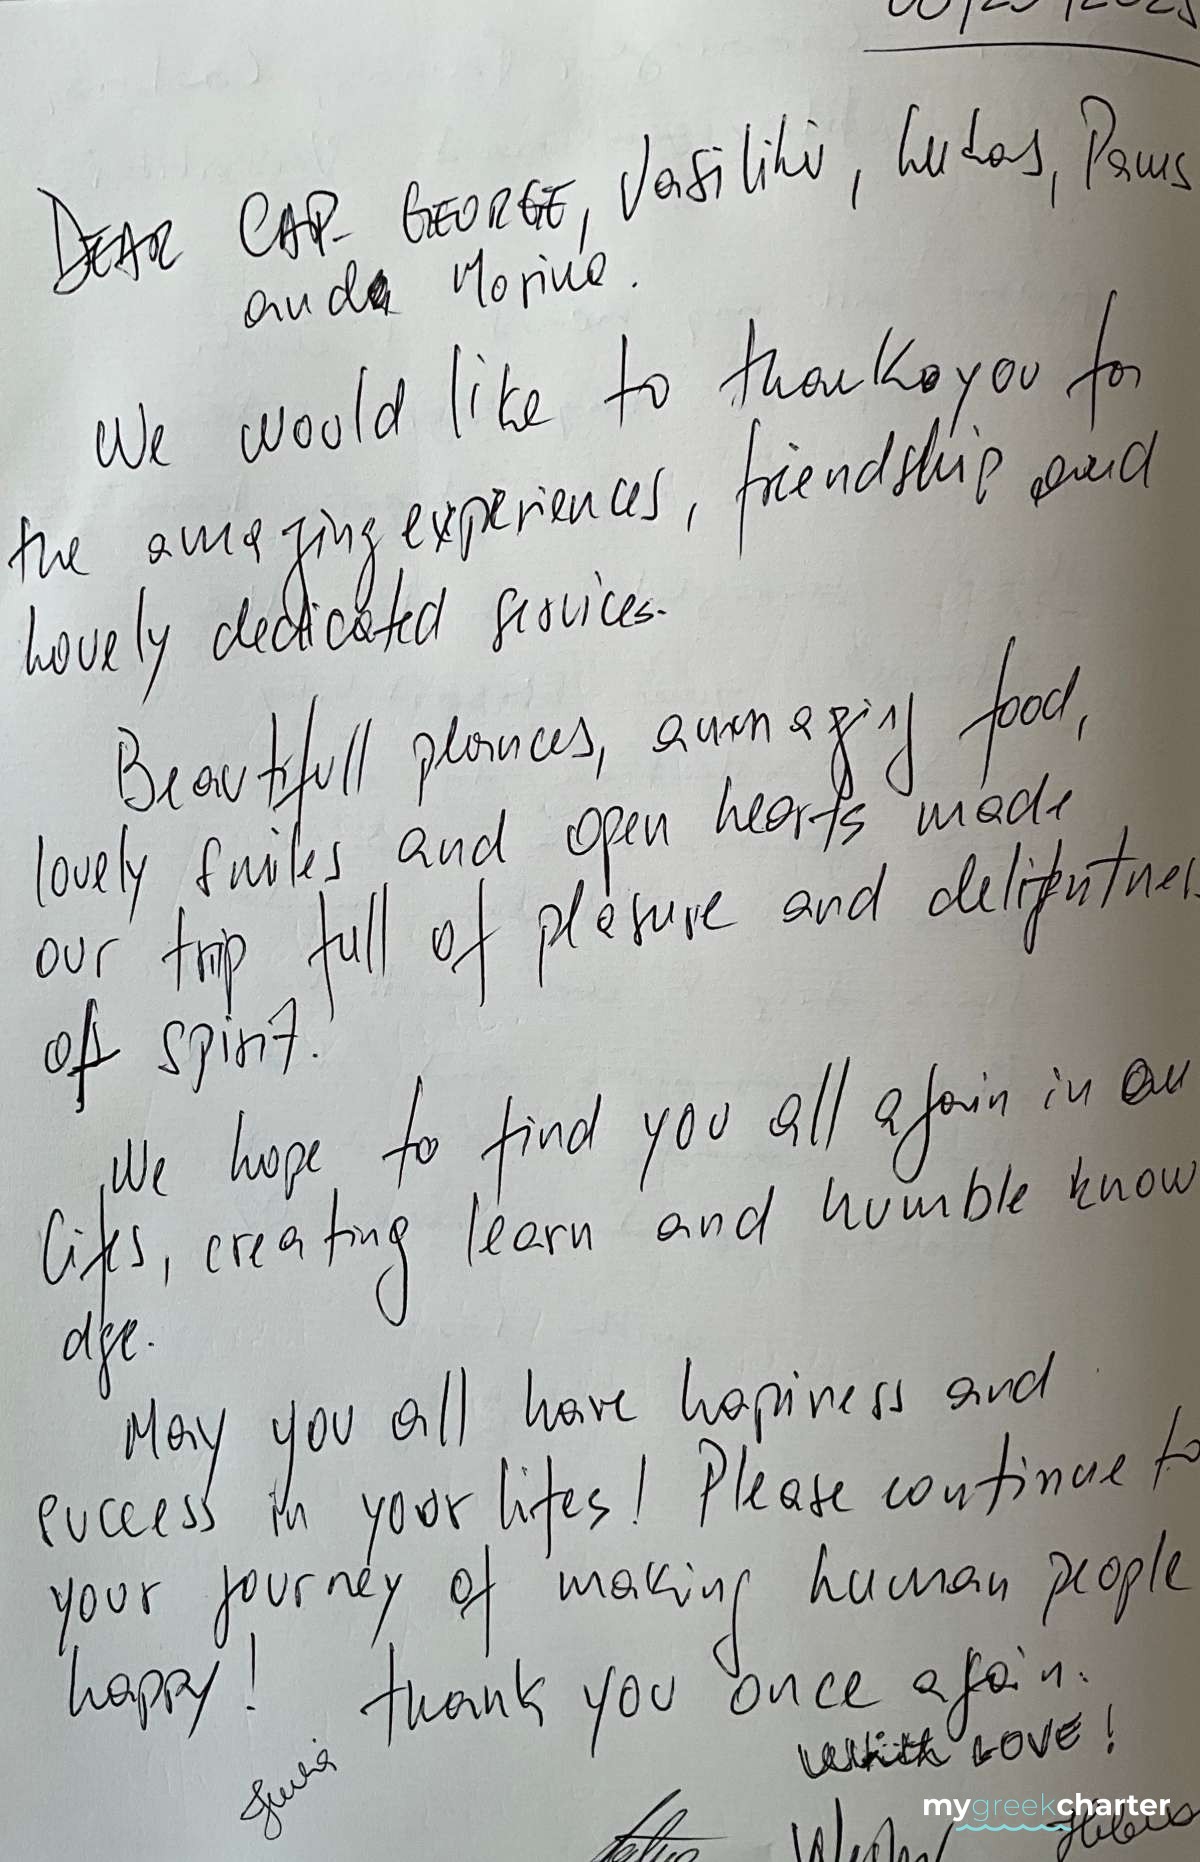 DEAR CAP. GEORGE, Vasiliki, Lukas,
and Marina.
We would like to thank you for
the amazing experiences, friendship and
lovely dedicated services.
Beautifull plances, amazing food,
lovely smiles and open hearts made
our trip full of plesure and
of spirit.
We hope to find you all again in
lifes, creating learn and humble know
dge.
May you all have hapiness and
success in your lifes! Please continue to
your journey of making human people
happy! thank you once again.
With LOVE!
mygreekcharter